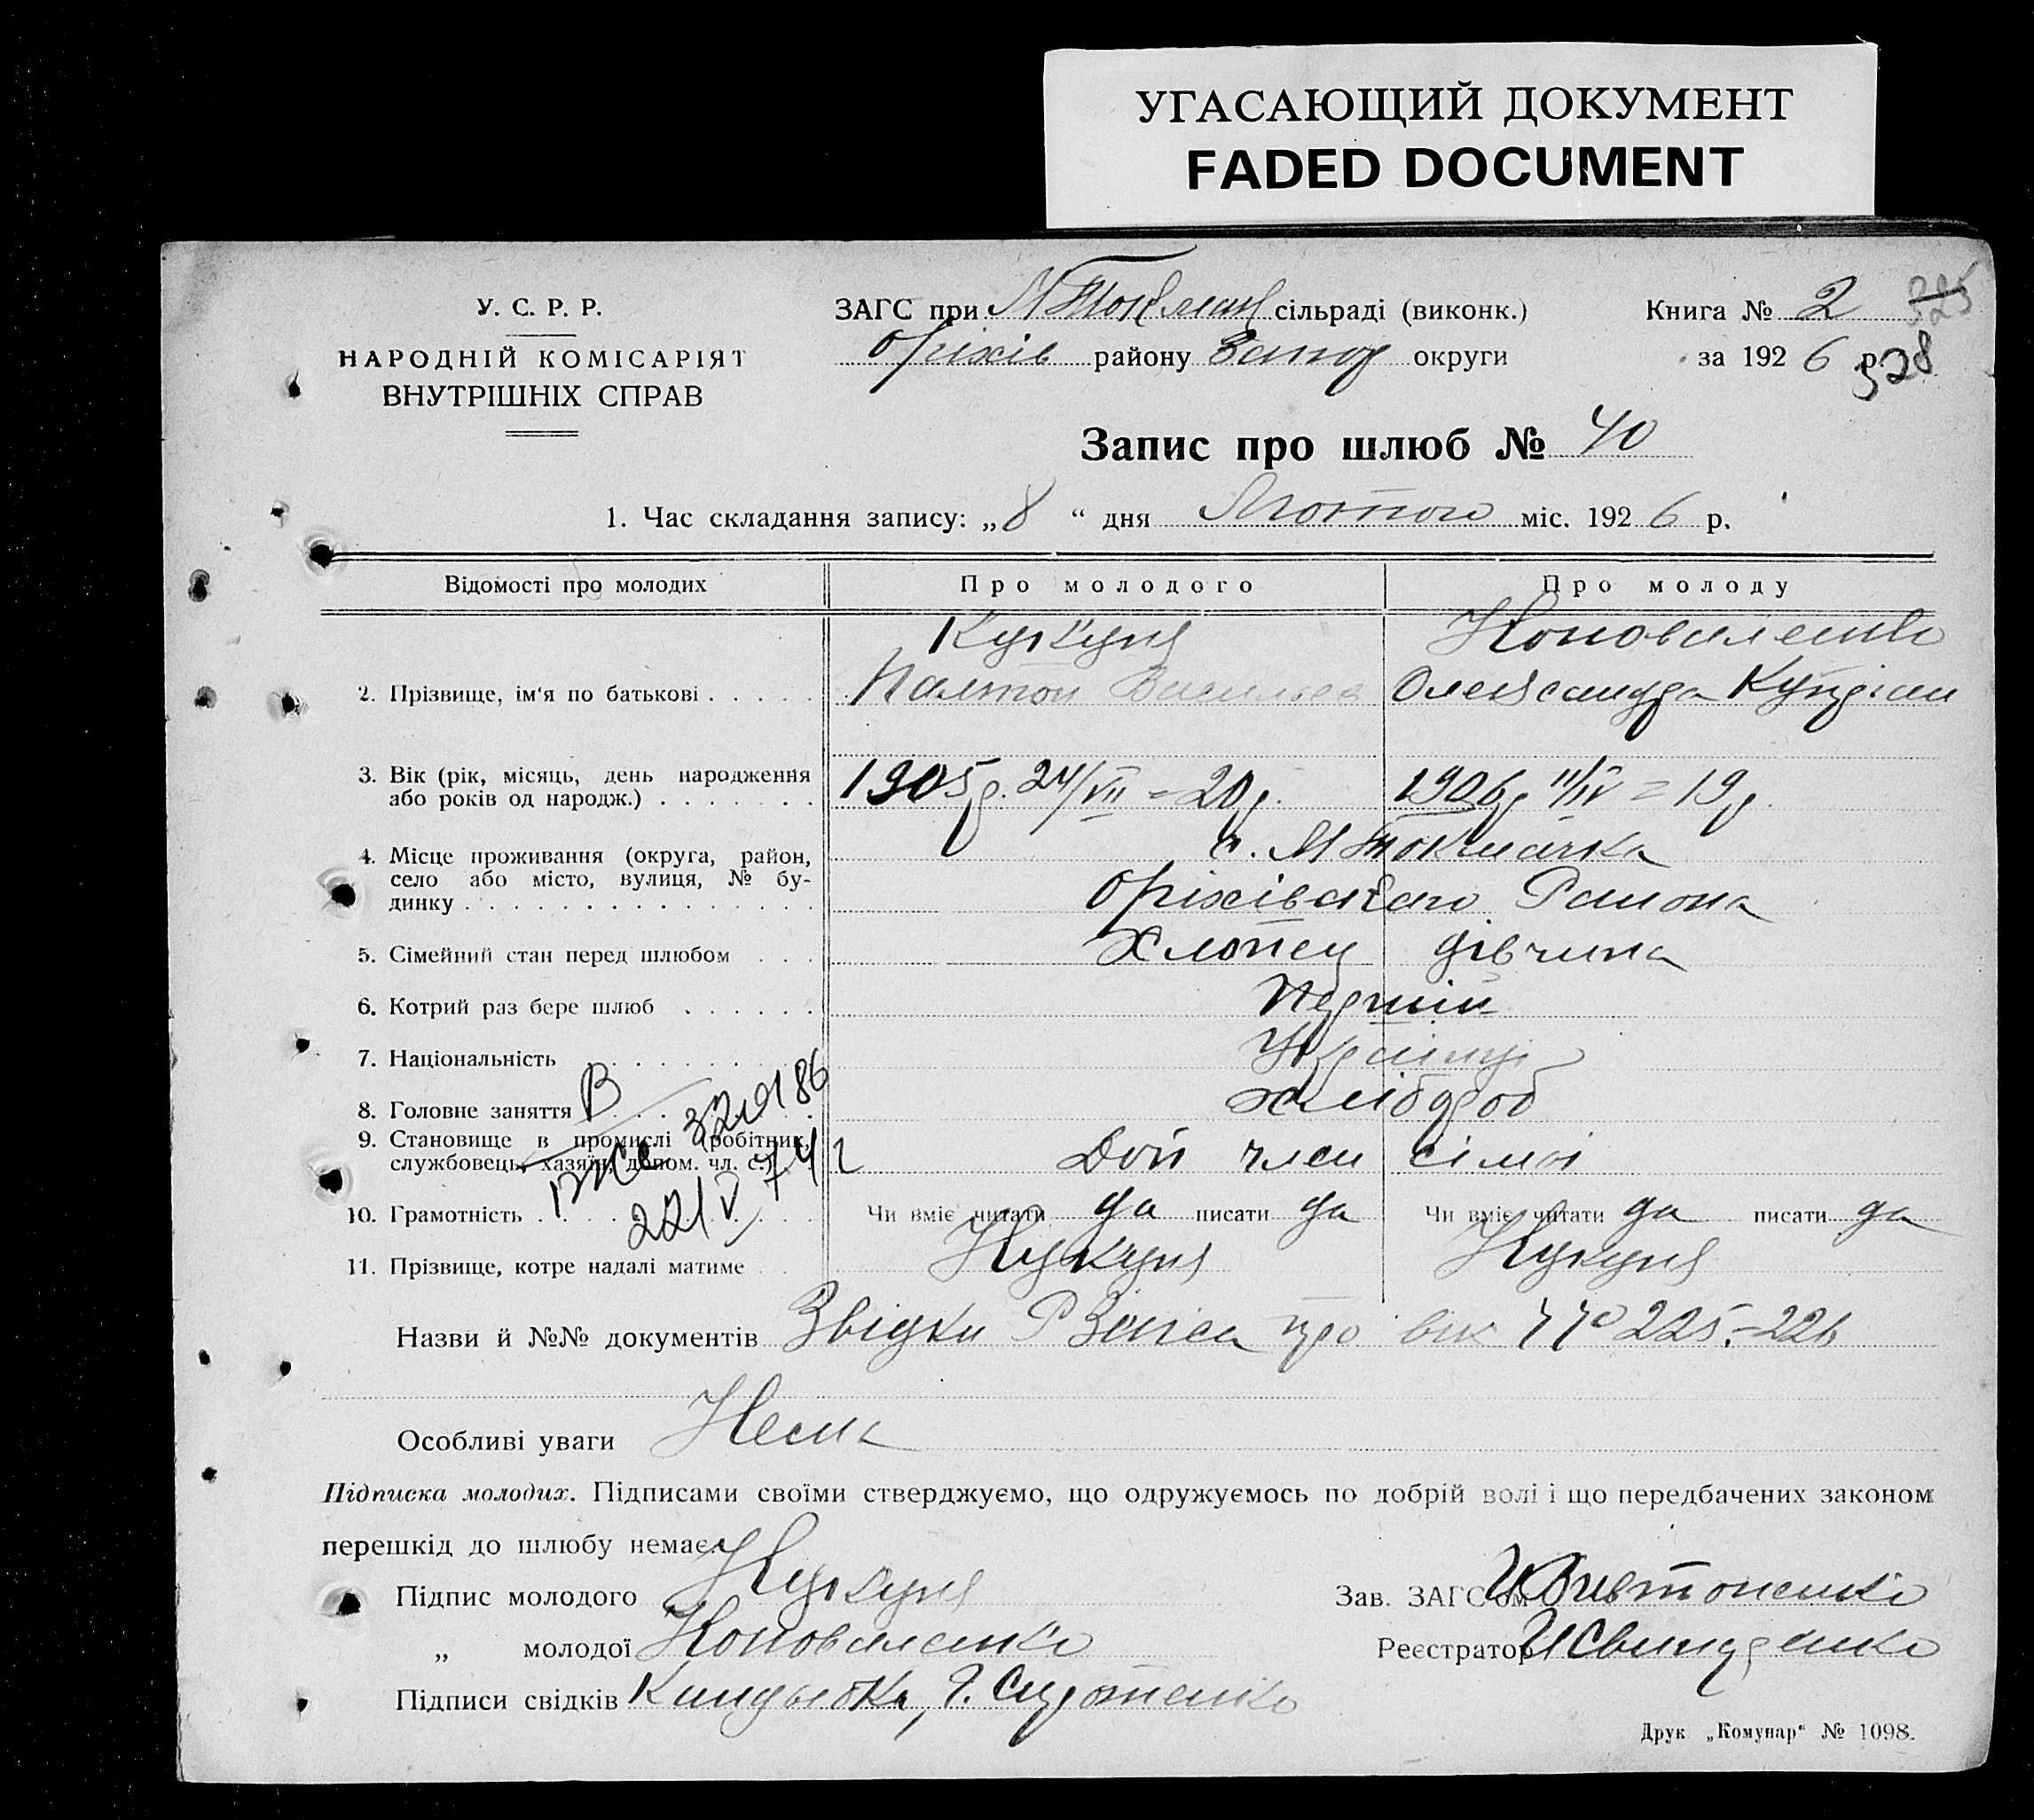 УГАСАЮЩИЙ ДОКУМЕНТ
FADED DOCUMENT
У. С. Р. Р.
НАРОДНІЙ КОМІСАРІЯТ
ВНУТРІШНІХ СПРАВ
ЗАГС при М Токмац сільраді (виконк.)
Оріхів району Запор округи
Книга № 2 325
за 1926 р. 328
Запис про шлюб № 40
1. Час складання запису: „8“ дня Лютого міс. 1926 р.
Відомості про молодих Про молодого Про молоду
Кукуня Коноваленко
2. Прізвище, ім'я по батькові Платон Васильев Олександра Купріян
3. Вік (рік, місяць, день народження
або років од народж.) 1905 р. 24/VII = 20 р. 1906 р 11/IV = 19 р.
4. Місце проживання (округа, район, с. М Токмачка
село або місто, вулиця, № бу-
динку Оріхівского Района
5. Сімейний стан перед шлюбом Хлопец дівчина
6. Котрий раз бере шлюб Перший
7. Національність Українці
8. Головне заняття хлібороб
9. Становище в промислі (робітник,
службовець, хазяїн, допом. чл. с.) Доп член сімьі
10. Грамотність Чи вміє читати да писати да Чи вміє читати да писати да
11. Прізвище, котре надалі матиме Кукуня Кукуня
Назви й №№ документів Звідки РЗагса про вік № 225-226
Особливі уваги Нема
Підписка молодих. Підписами своїми стверджуємо, що одружуємось по добрій волі і що передбачених законом
перешкід до шлюбу немає.
Підпис молодого Кукуня Зав. ЗАГС'ом
„ молодої Коноваленко Реєстратор
Підписи свідків
Друк „Комунар“ № 1098.